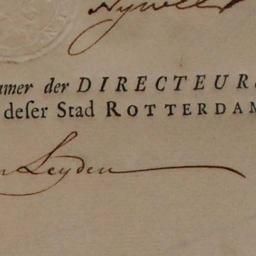 amer der DIRECTEUR
deſer Stad ROTTERDAM
Leyden